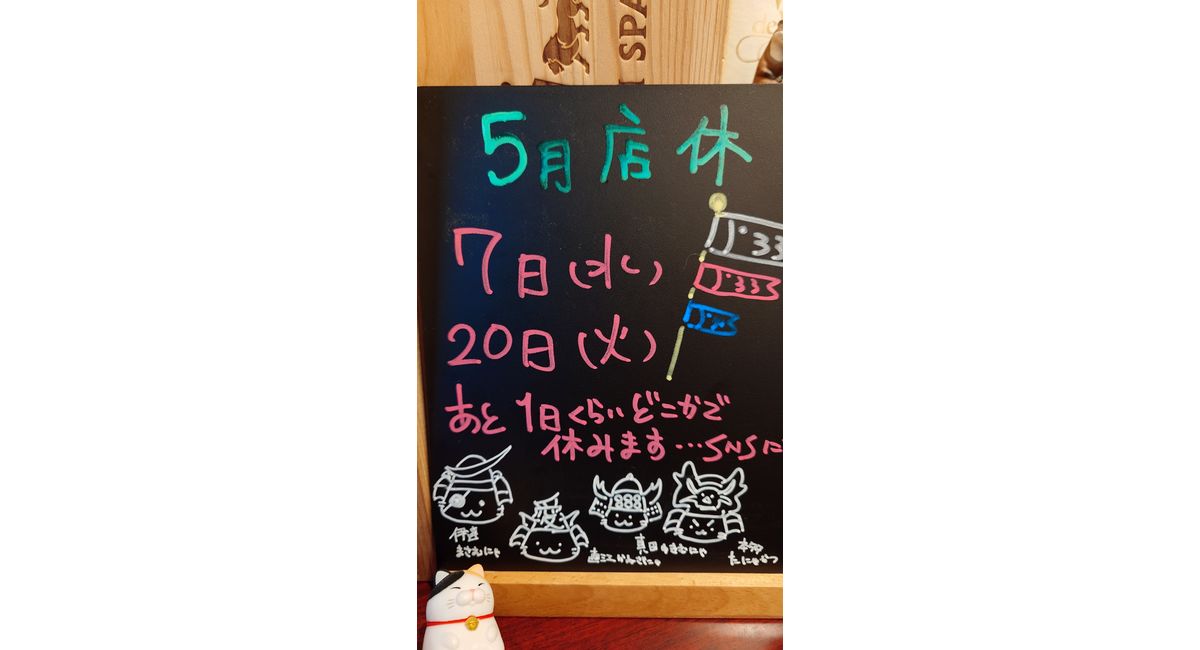 SPA
5月店休
7日(水)
20日(火)
あと1日くらいどこかで
休みます…SNSに
愛
伊達
まさむにゃ
直江かねつにゃ
真田ゆきむにゃ
本多
たにゃかつ